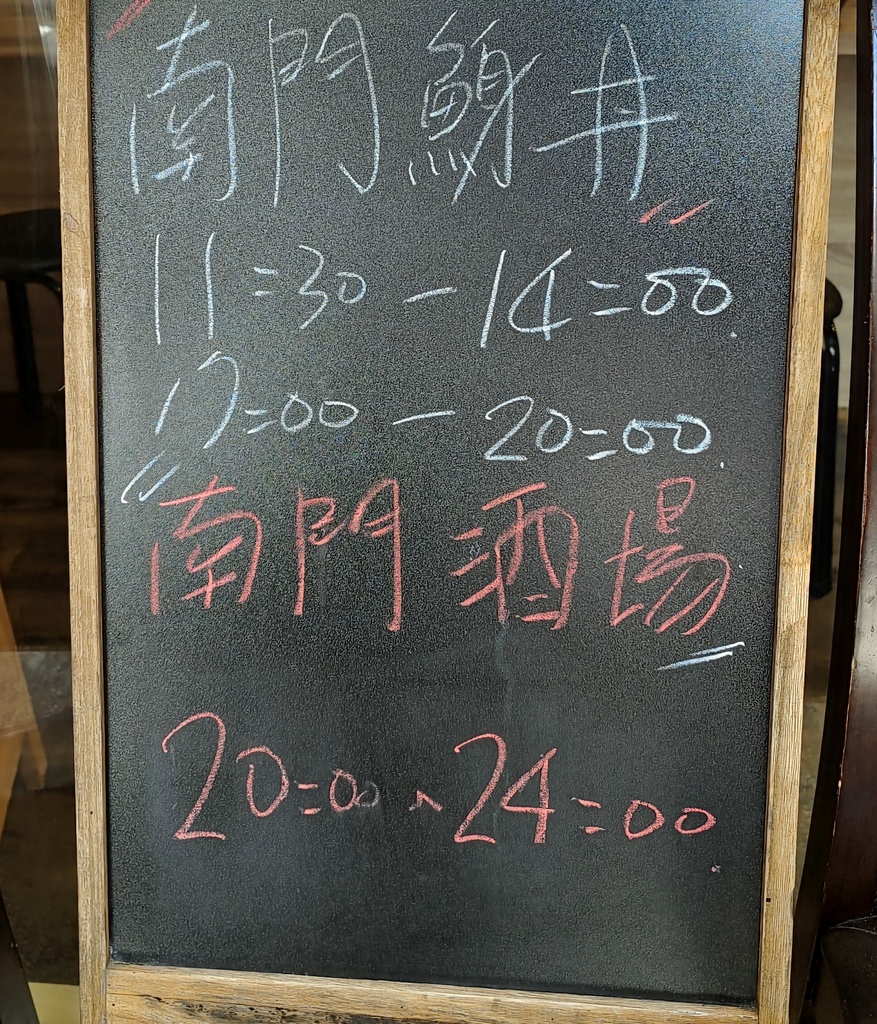 南門鯓井
11:30 - 14:00
17:00 - 20:00
南門酒場
20:00 ~ 24:00